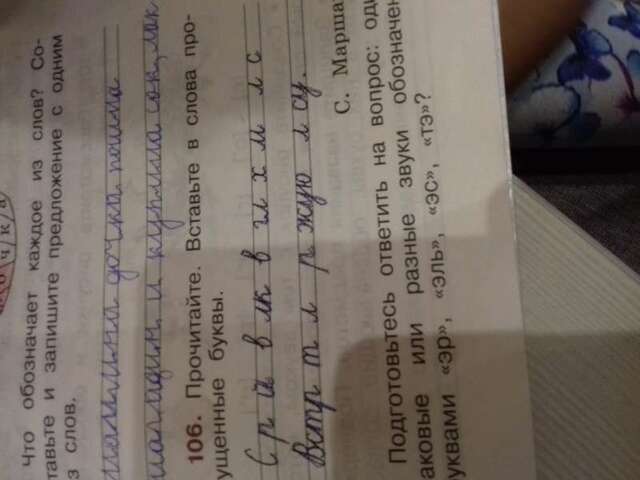 ч/к/а
Что обозначает каждое из слов? Со-
тавьте и запишите предложение с одним
з слов.
мамина дочка пошла
и купила сок, мак
106. Прочитайте. Вставьте в слова про-
ущенные буквы.
С р й в лк в гл х м л с
Встр т л р жую л су.
С. Марша
Подготовьтесь ответить на вопрос: од
аковые или разные звуки обозначен
уквами «эр», «эль», «эс», «тэ»?